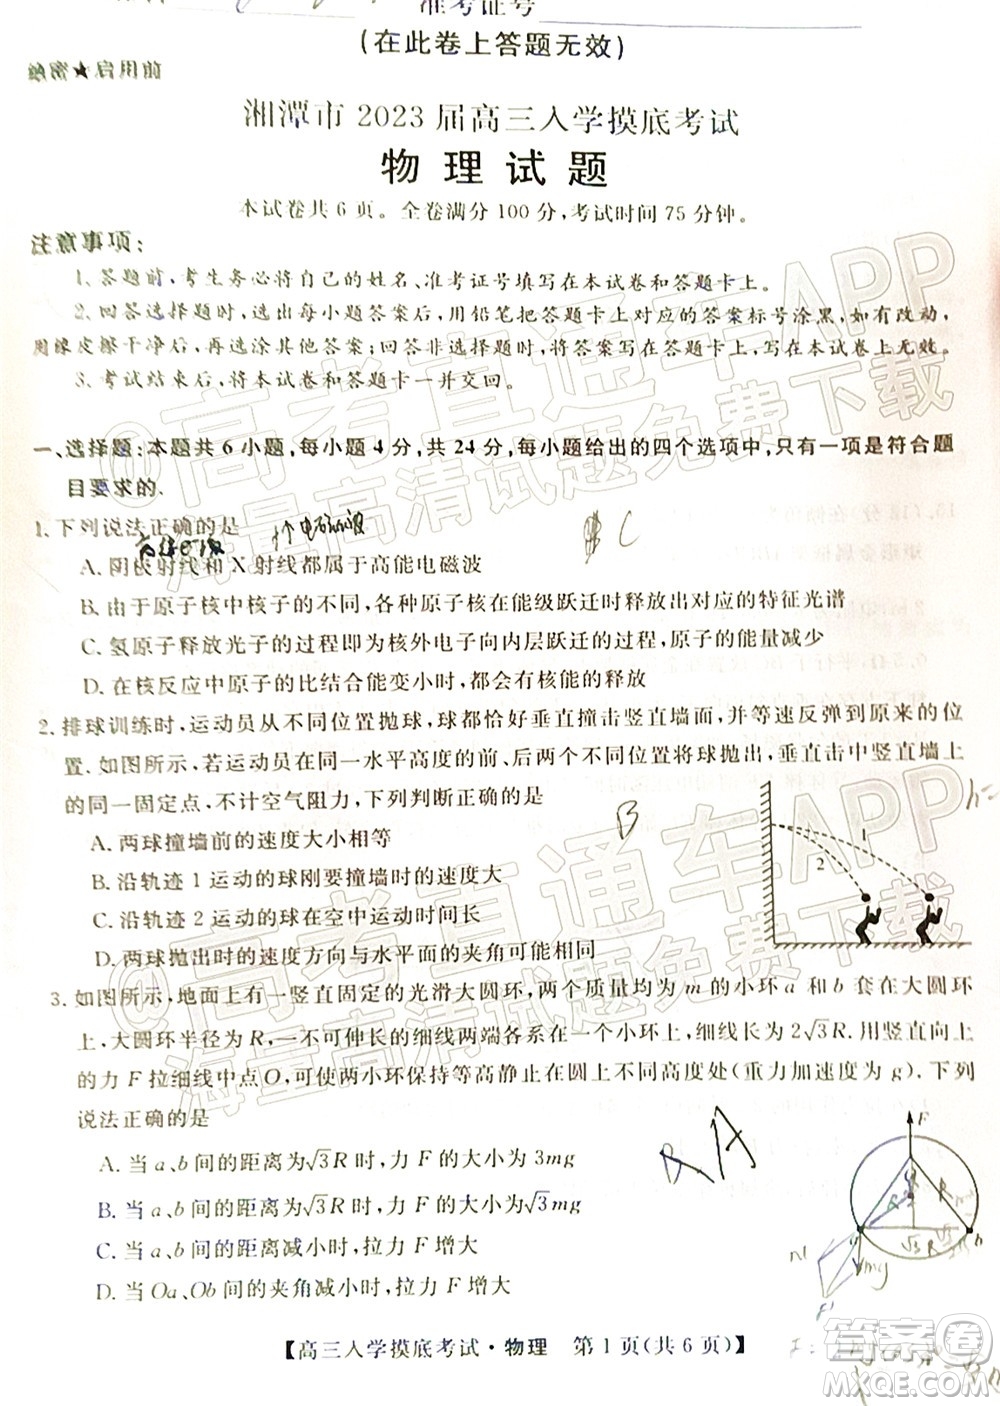 准考证号
(在此卷上答题无效)
绝密★启用前
湘潭市 2023 届高三入学摸底考试
物理试题
本试卷共 6 页。全卷满分 100 分,考试时间 75 分钟。
注意事项:
1. 答题前,考生务必将自己的姓名、准考证号填写在本试卷和答题卡上。
2. 回答选择题时,选出每小题答案后,用铅笔把答题卡上对应的答案标号涂黑,如有改动,
用橡皮擦干净后,再选涂其他答案;回答非选择题时,将答案写在答题卡上,写在本试卷上无效。
3. 考试结束后,将本试卷和答题卡一并交回。
一、选择题:本题共 6 小题,每小题 4 分,共 24 分,每小题给出的四个选项中,只有一项是符合题
目要求的.
1. 下列说法正确的是
C
A. 阴极射线和 X 射线都属于高能电磁波
B. 由于原子核中核子的不同,各种原子核在能级跃迁时释放出对应的特征光谱
C. 氢原子释放光子的过程即为核外电子向内层跃迁的过程,原子的能量减少
D. 在核反应中原子的比结合能变小时,都会有核能的释放
2. 排球训练时,运动员从不同位置抛球,球都恰好垂直撞击竖直墙面,并等速反弹到原来的位
置. 如图所示,若运动员在同一水平高度的前、后两个位置将球抛出,垂直击中竖直墙上
的同一固定点,不计空气阻力,下列判断正确的是
B
A. 两球撞墙前的速度大小相等
B. 沿轨迹 1 运动的球刚要撞墙时的速度大
C. 沿轨迹 2 运动的球在空中运动时间长
D. 两球抛出时的速度方向与水平面的夹角可能相等
1
2
h=
3. 如图所示,地面上有一竖直固定的光滑大圆环,两个质量均为 m 的小环 a 和 b 套在大圆环
上,大圆环半径为 R,一根不可伸长的细线两端各系在一个小环上,细线长为 2√3R. 用竖直向上
的力 F 拉细线中点 O,可使两个小环保持等高静止在圆上不同高度处(重力加速度为 g). 下列
说法正确的是
A
A. 当 a、b 间的距离为√3R 时,力 F 的大小为 3mg
B. 当 a、b 间的距离为√3R 时,力 F 的大小为√3mg
C. 当 a、b 间的距离减小时,拉力 F 增大
D. 当 Oa、Ob 间的夹角减小时,拉力 F 增大
F
R
√3R
mg
【高三入学摸底考试·物理 第 1 页(共 6 页)】
@高考直通车APP
海量高清试题免费下载
@高考直通车APP
海量高清试题免费下载
答案圈
MXQE.COM